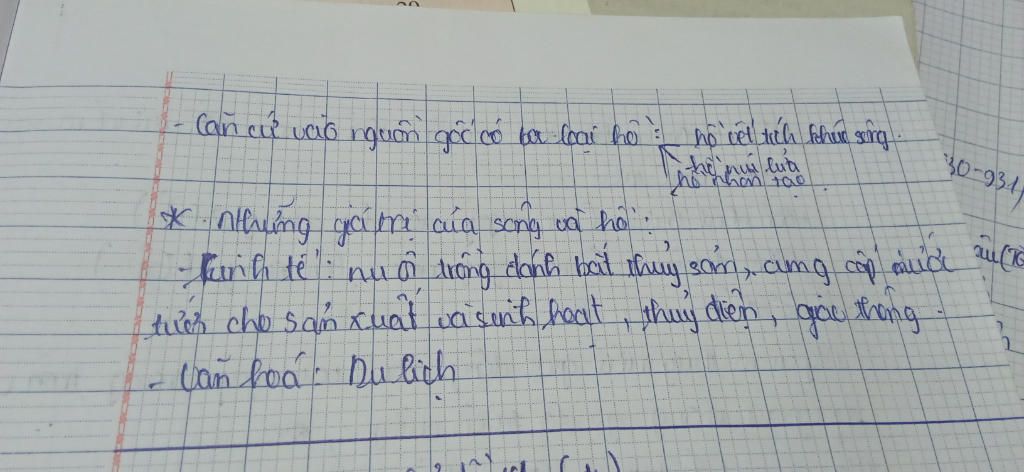 - Căn cứ vào nguồn gốc có ba loại hồ: - hồ vết tích khúc sông.
- hồ núi lửa
hồ nhân tạo.
* Những giá trị của sông và hồ:
- Kinh tế: nuôi trồng đánh bắt thuỷ sản, cung cấp nước
cho sản xuất và sinh hoạt, thuỷ điện, giao thông.
- Văn hoá: Du lịch
30-931)